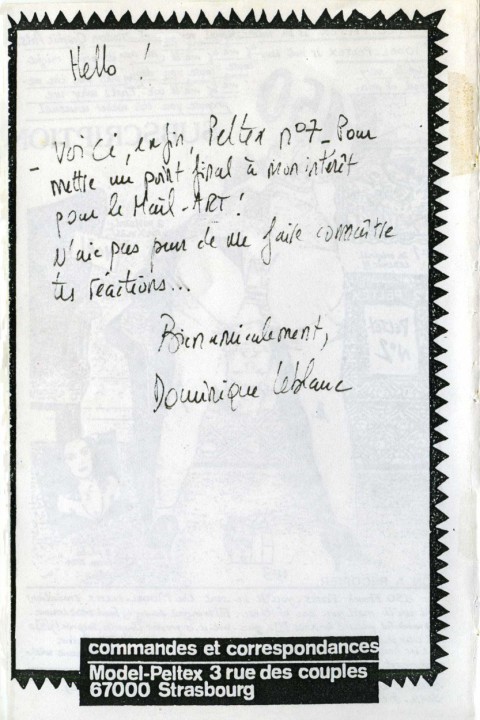 Hello !
- Voici, enfin, Peltex n°7_ Pour
mettre un point final à mon intérêt
pour le Mail-ART!
N'aie pas peur de me faire connaître
tes réactions...
Bien amicalement,
Dominique Leblanc
commandes et correspondances
Model-Peltex 3 rue des couples
67000 Strasbourg